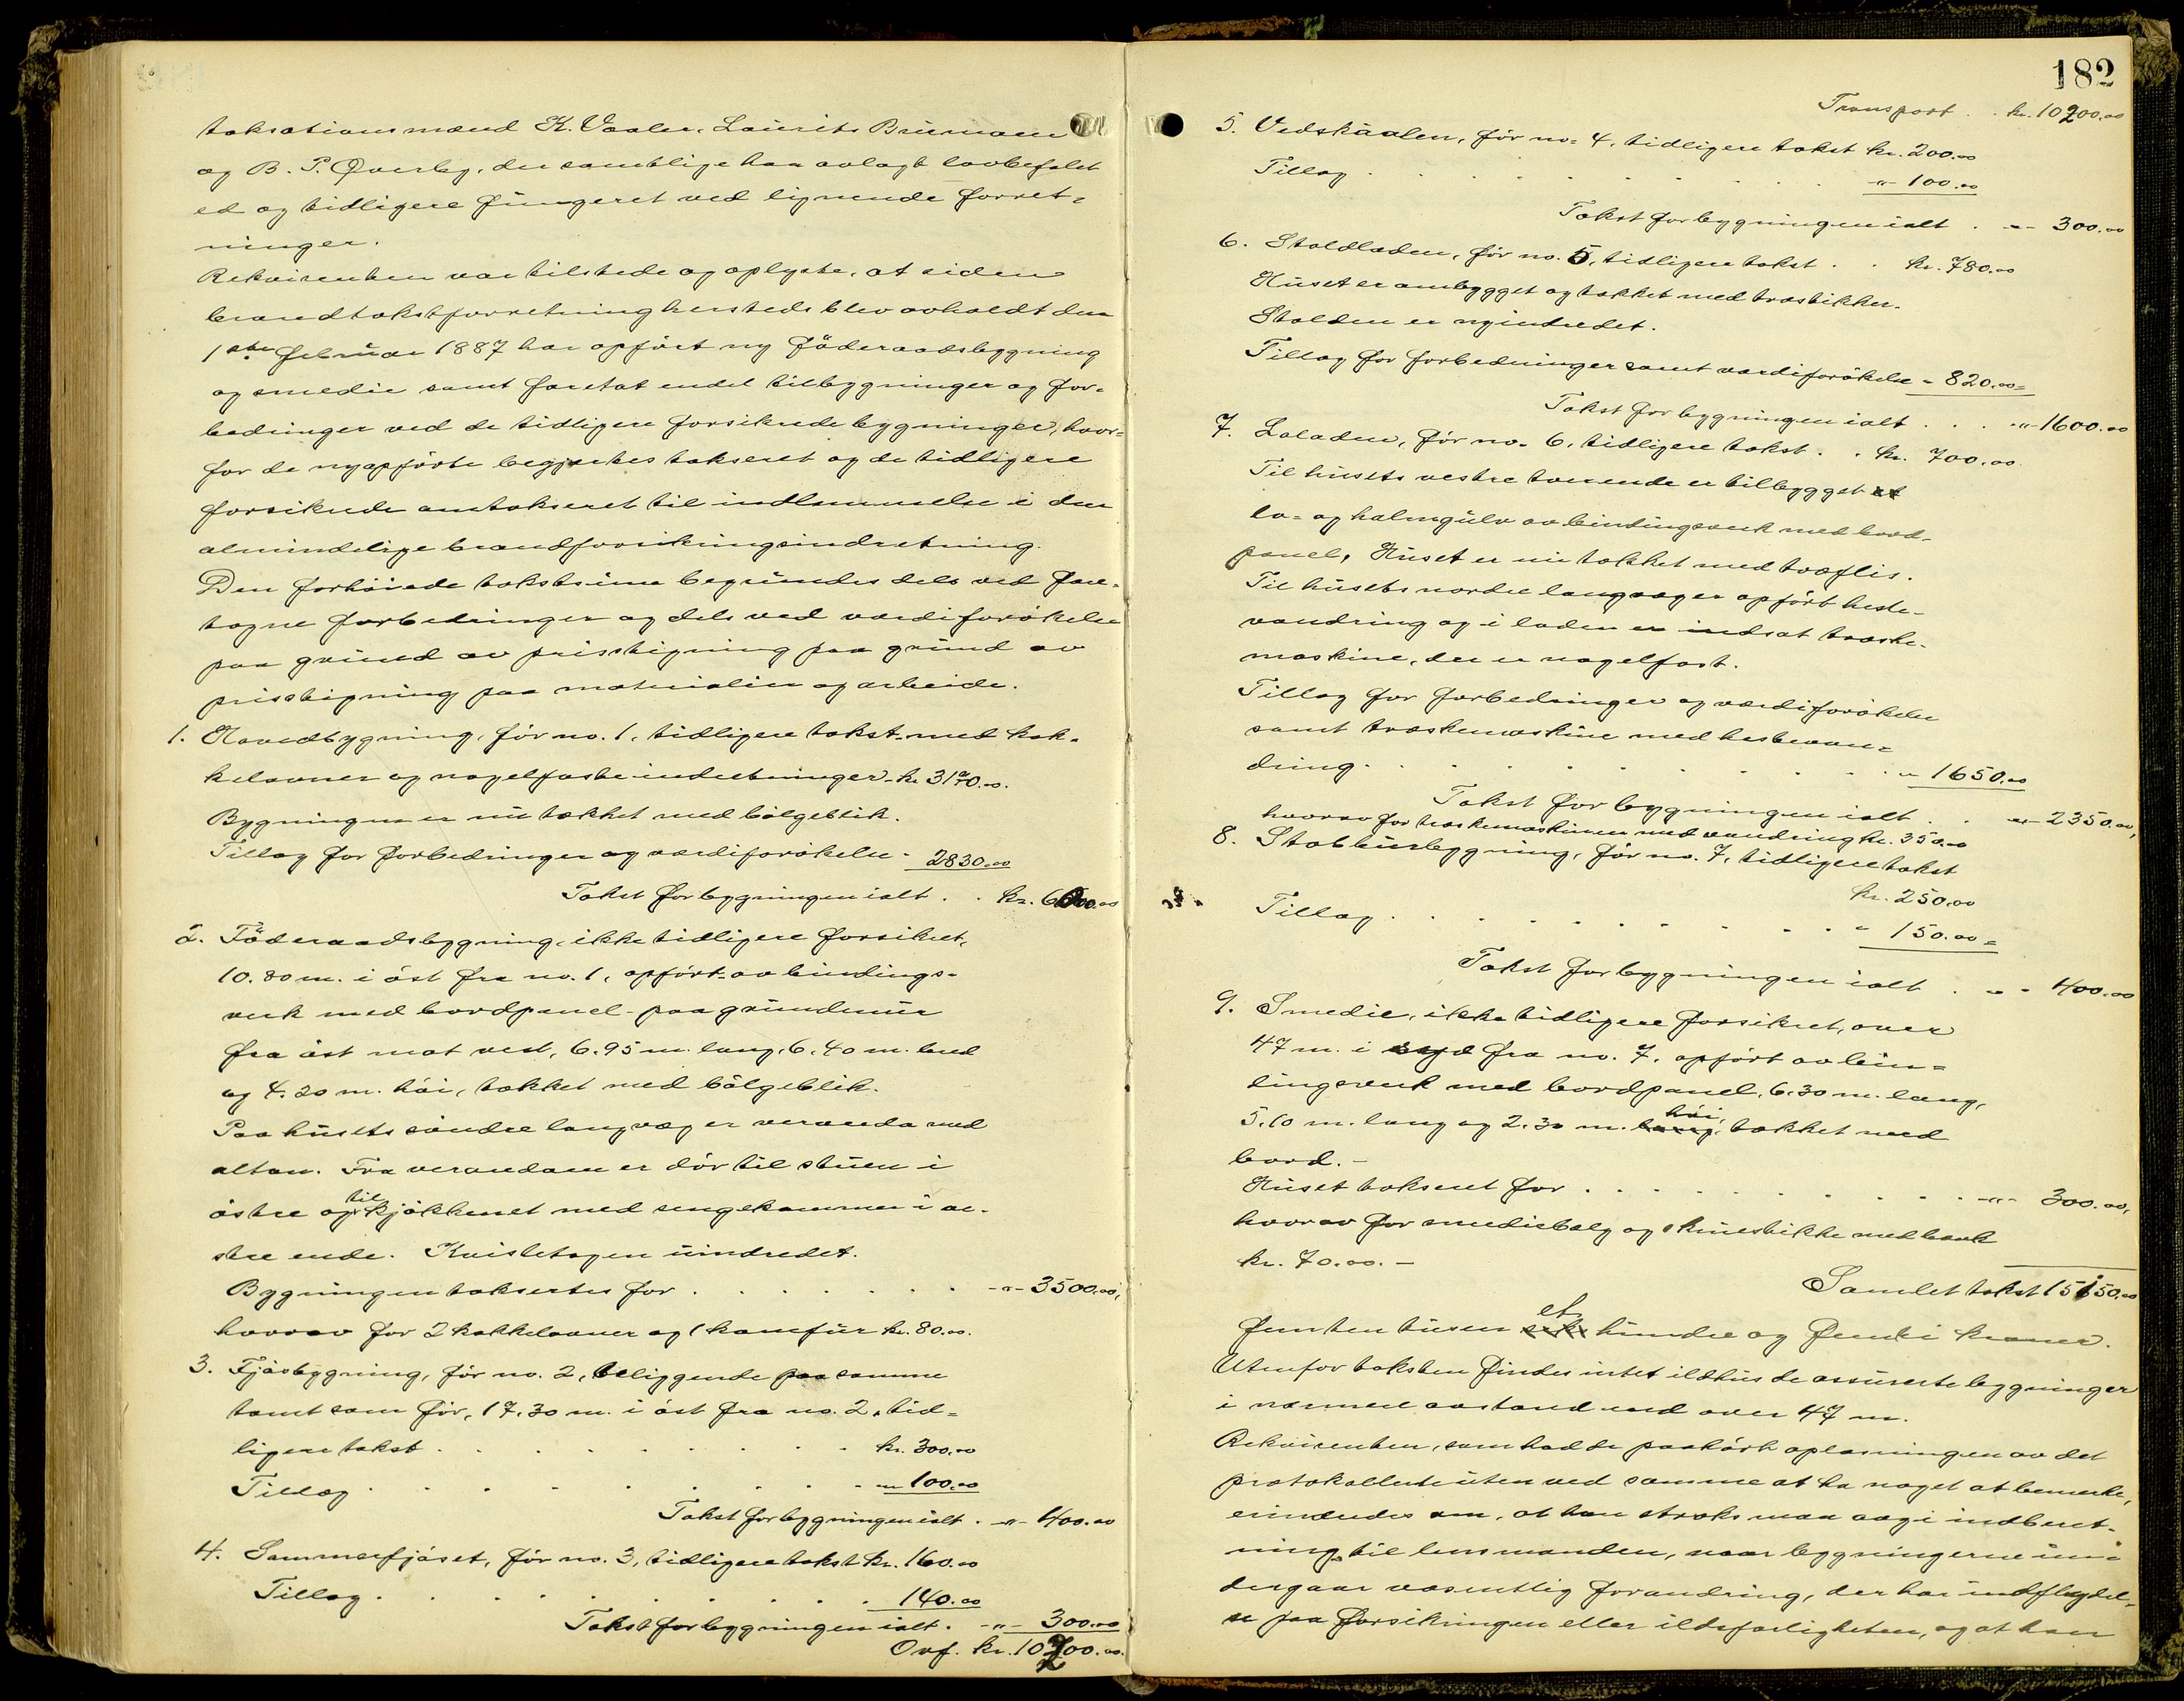 taksationsmænd K. Vaaler, Laurits
og B. P. Øverby, der samtlige har avlagt lovbefalet
ed og tidligere fungeret ved lignende forret-
ninger.
Rekvirenten var tilstede og oplyste, at siden
brandtakstforretning hersteds blev avholdt den
1ste februar 1887 har opført ny føderaadsbygning
og smedie samt foretat endel tilbygninger og for-
bedringer ved de tidligere forsikrede bygninger, hvor-
for de nyopførte begjærtes takseret og de tidligere
forsikrede omtakseret til indlemmelse i den
almindelige brandforsikringsindretning.
Den forhøiede takstsum begrundes dels ved fore-
tagne forbedringer og dels ved værdiforøkelse
paa grund av prisstigning paa grund av
prisstigning paa materialier og arbeide.
1. Hovedbygning, før no. 1, tidligere takst med kak-
kelovner og nagelfaste indretninger - kr. 3170.00.
Bygningen er nu tækket med bølgeblik.
Tillæg for forbedringer og værdiforøkelse - 2830.00
Takst for bygningen ialt . . kr. 6000.00
2. Føderaadsbygning, ikke tidligere forsikret,
10.80 m. i øst fra no. 1, opført av bindings-
verk med bordpanel paa grundmur
fra øst mot vest, 6.95 m. lang, 6.40 m. bred
og 4.20 m. høi, tækket med bølgeblik.
Paa husets søndre langvæg er veranda med
altan. Fra verandaen er dør til stuen i
østre og til kjøkkenet med sengekammer i ve-
stre ende. Kvistetagen uindredet.
Bygningen takseres for . . . . . . . -"- 3500.00,
hvorav for 2 kakkelovner og 1 komfur kr. 80.00.
3. Fjøsbygning, før no. 2, beliggende paa samme
tomt som før, 17.30 m. i øst fra no. 2, tid-
ligere takst . . . . . . . . kr. 300.00
Tillæg . . . . . . . . -"- 100.00
Takst for bygningen ialt . -"- 400.00
4. Sommerfjøset, før no. 3, tidligere takst kr. 160.00
Tillæg . . . . . . . . 140.00
Takst for bygningen ialt . -"- 300.00
Ovf. kr. 10200.00.
182
Transport . . kr. 10200.00
5. Vedskaalen, før no. 4, tidligere takst kr. 200.00
Tillæg . . . . . . . . -"- 100.00
Takst for bygningen ialt . -"- 300.00
6. Staldladen, før no. 5, tidligere takst . . kr. 780.00
Huset er ombygget og tækket med træstikker.
Stalden er nyindredet.
Tillæg for forbedringer samt værdiforøkelse - 820.00
Takst for bygningen ialt . . . -"- 1600.00
7. Loladen, før no. 6, tidligere takst . . kr. 700.00
Til husets vestre tverende er tilbygget et
lo- og halmgulv av bindingsverk med bord-
panel, Huset er nu tækket med træflis.
Til husets nordre langvæg er opført heste-
vandring og i laden er indsat træske-
maskine, der er nagelfast.
Tillæg for forbedringer og værdiforøkelse
samt træskemaskine med hestevan-
dring . . . . . . . . . -"- 1650.00
Takst for bygningen ialt . . -"- 2350.00,
hvorav for træskemaskinen med vandring kr. 350.00
8. Stabbursbygning, før no. 7, tidligere takst
kr. 250.00
Tillæg . . . . . . . . " 150.00
Takst for bygningen ialt . -"- 400.00
9. Smedie, ikke tidligere forsikret, over
47 m. i syd fra no. 7, opført av bin-
dingsverk med bordpanel, 6.30 m. lang,
5.10 m. lang og 2.30 m. lang høi, tækket med
bord. -
Huset takseret for . . . . . . . . . -"- 300.00,
hvorav for smediebelg og skruestikke med bænk
kr. 70.00. -
Samlet takst 15150.00
femten tusen seks et hundre og femti kroner.
Utenfor taksten findes intet ildhus de assurerte bygninger
i nærmere avstand end over 47 m.
Rekvirenten, som hadde paahørt oplæsningen av det
protokollerte uten ved samme at ha noget at bemerke,
erindredes om, at han straks maa avgi indberet-
ning til lensmanden, naar bygningerne un-
dergaar væsentlig forandring, der har indflydel-
se paa forsikringen eller ildsfarligheten, og at han